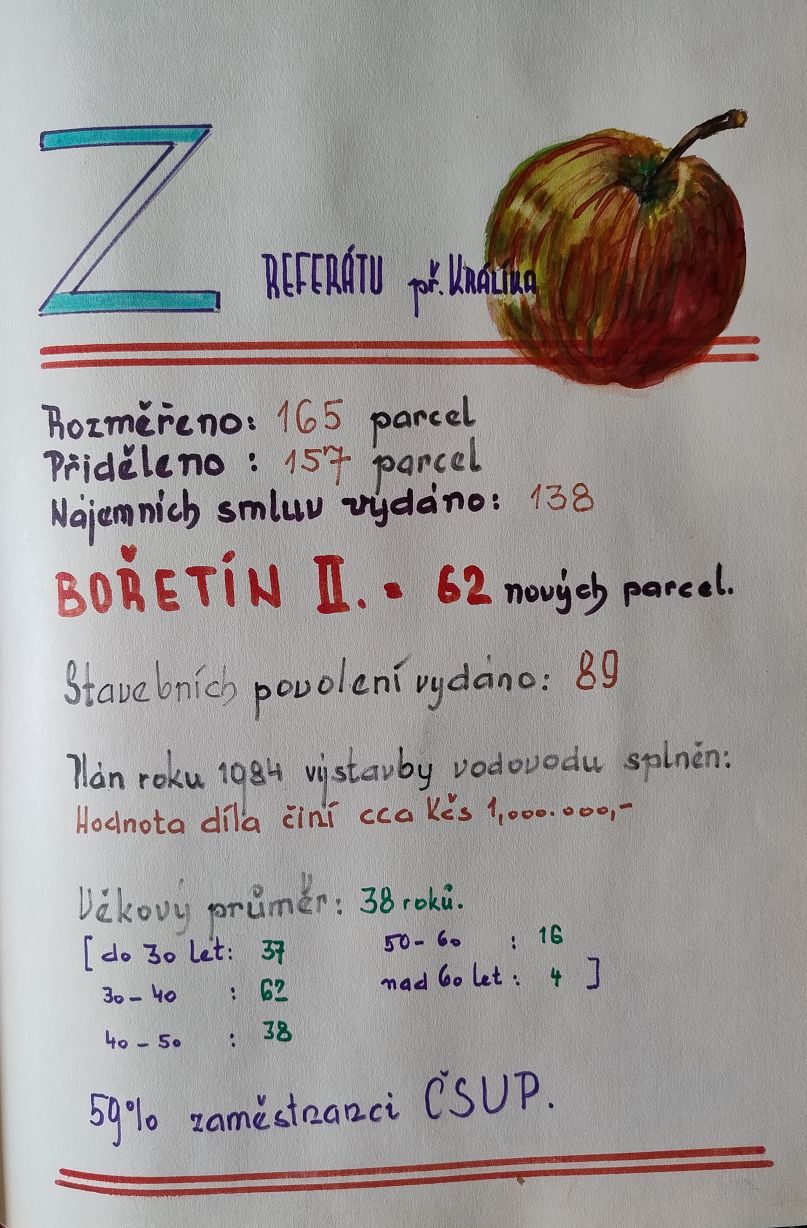 Z REFERÁTU př. KRÁLÍKA
Rozměřeno: 165 parcel
Přiděleno : 157 parcel
Nájemních smluv vydáno: 138
BOŘETÍN II. - 62 nových parcel.
Stavebních povolení vydáno: 89
Plán roku 1984 výstavby vodovodu splněn:
Hodnota díla činí cca Kčs 1,000.000,-
Věkový průměr: 38 roků.
[ do 30 let: 37 50-60 : 16
30-40 : 62 nad 60 let: 4 ]
40-50 : 38
59% zaměstnanci ČSUP.